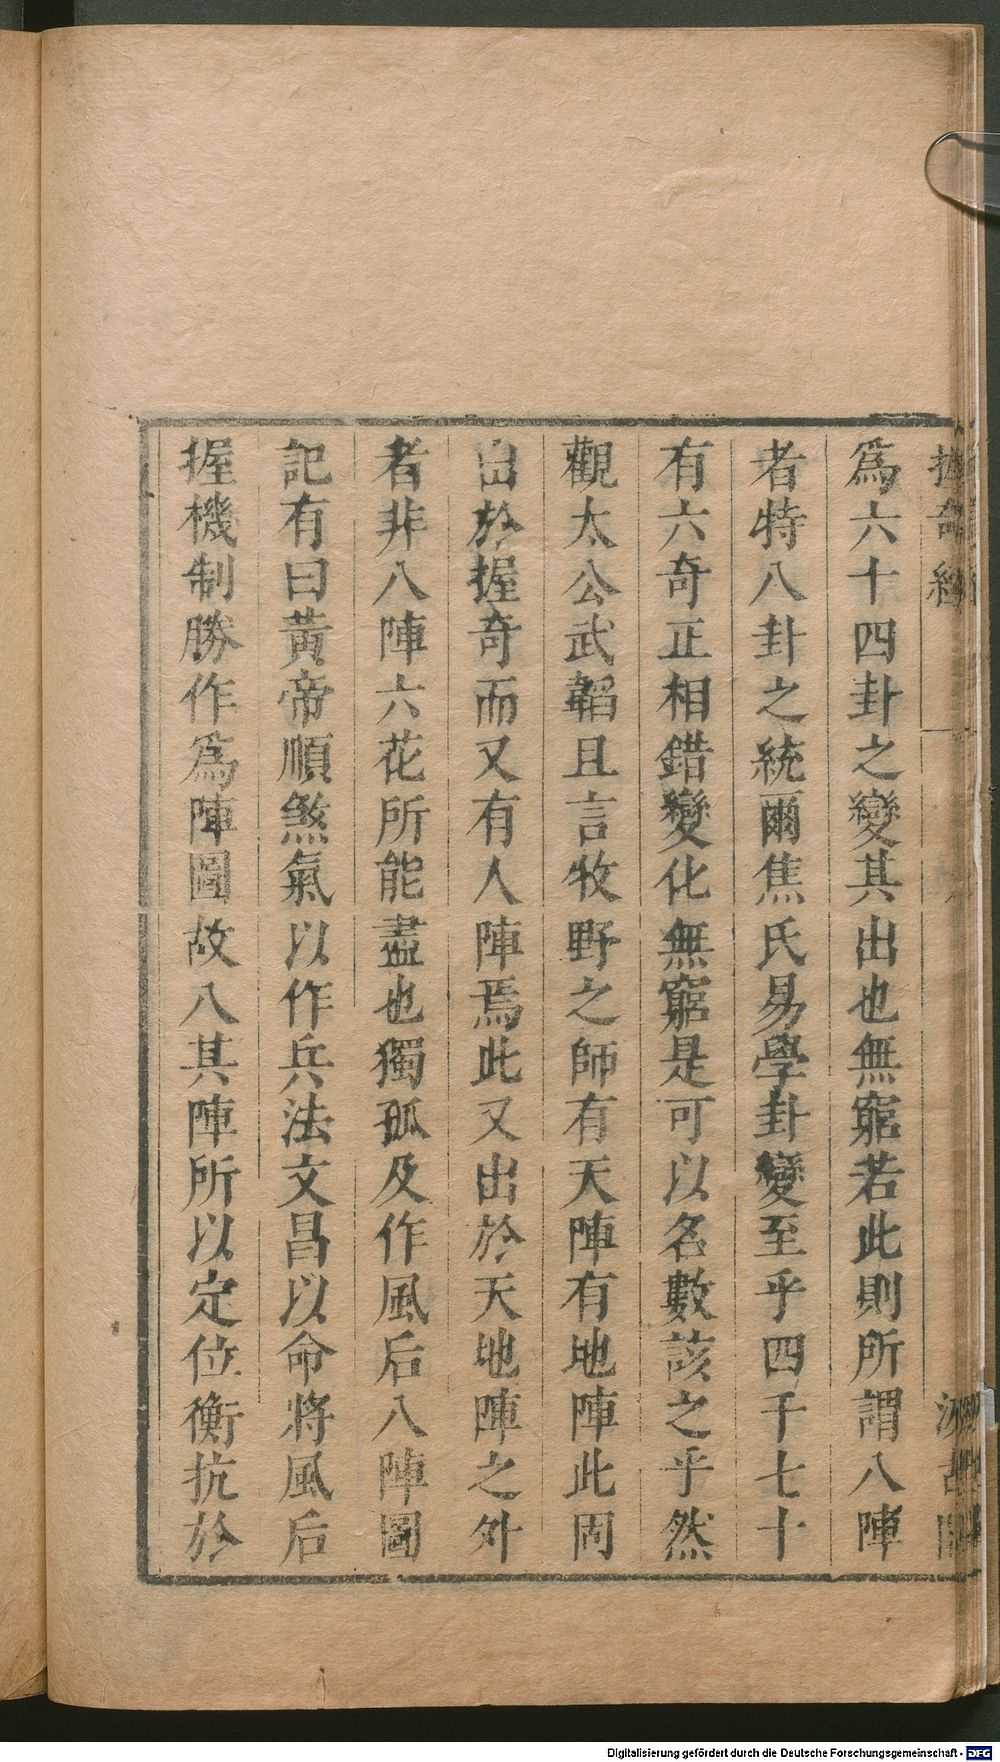 握奇經
為六十四卦之變其出也無窮若此則所謂八陣
者特八卦之統爾焦氏易學卦變至乎四千七十
有六奇正相錯變化無窮是可以名數該之乎然
觀太公武韜且言牧野之師有天陣有地陣此固
出於握奇而又有人陣焉此又出於天地陣之外
者非八陣六花所能盡也獨孤及作風后八陣圖
記有曰黃帝順煞氣以作兵法文昌以命將風后
握機制勝作為陣圖故八其陣所以定位衡抗於
Digitalisierung gefördert durch die Deutsche Forschungsgemeinschaft - DFG